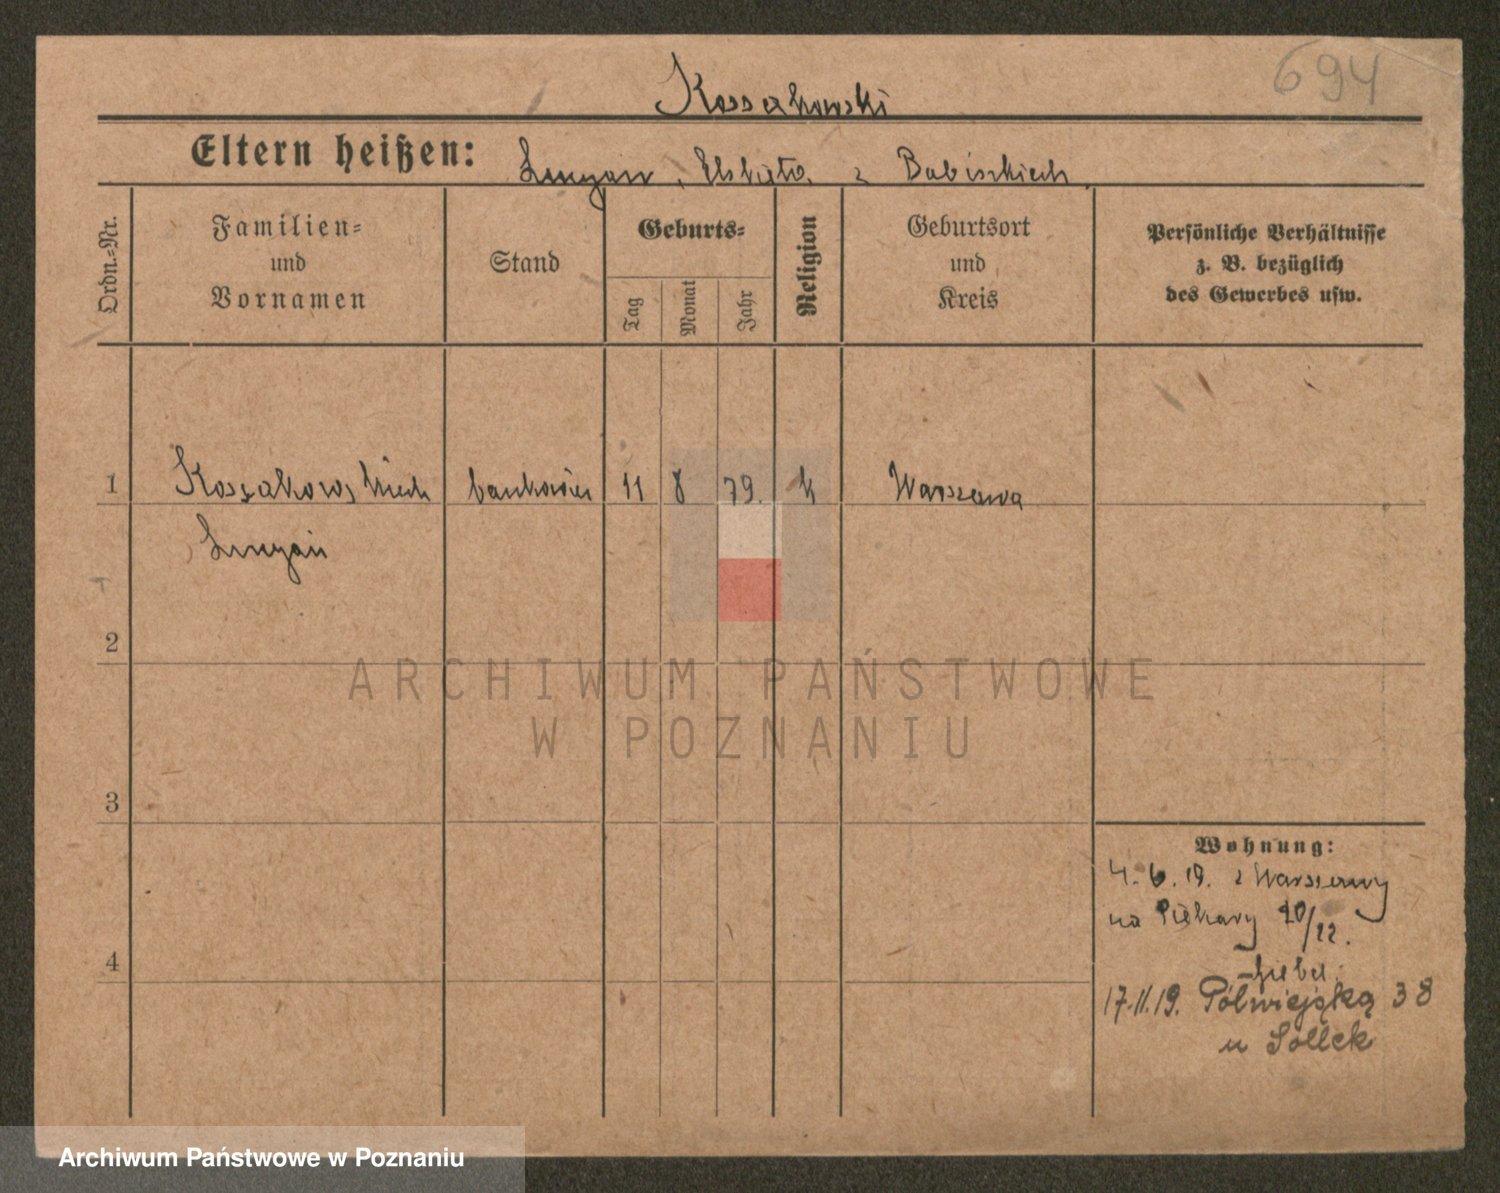 694
Kossakowski
Eltern heißen: Lucyan, Elżbieta z Babiskich
Ordn.-Nr.
Familien- und Vornamen
Stand
Geburts-
Tag
Monat
Jahr
Religion
Geburtsort und Kreis
Persönliche Verhältnisse
z. B. bezüglich
des Gewerbes usw.
1 bankowiec 11 8 79. k Warszawa
Lucyan
2
ARCHIWUM PAŃSTWOWE
W POZNANIU
3
Wohnung:
4. 6. 19. z Warszawy
na Piekary 20/22.
4
17.11.19. Półwiejską 38
u Sollek
Archiwum Państwowe w Poznaniu